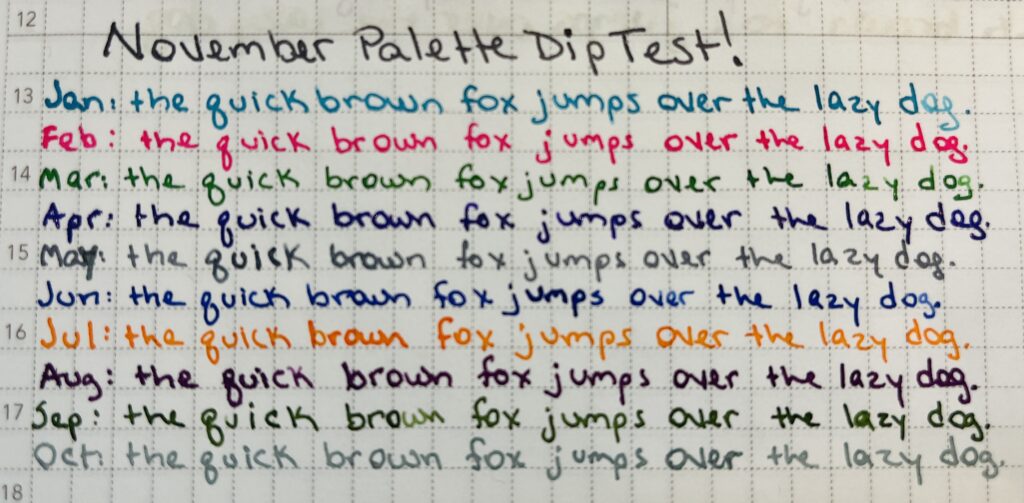 12
November Palette Dip Test!
13 Jan: the quick brown fox jumps over the lazy dog.
Feb: the quick brown fox jumps over the lazy dog.
14 Mar: the quick brown fox jumps over the lazy dog.
Apr: the quick brown fox jumps over the lazy dog.
15 May: the quick brown fox jumps over the lazy dog.
Jun: the quick brown fox jumps over the lazy dog.
16 Jul: the quick brown fox jumps over the lazy dog.
Aug: the quick brown fox jumps over the lazy dog.
17 Sep: the quick brown fox jumps over the lazy dog.
Oct: the quick brown fox jumps over the lazy dog.
18